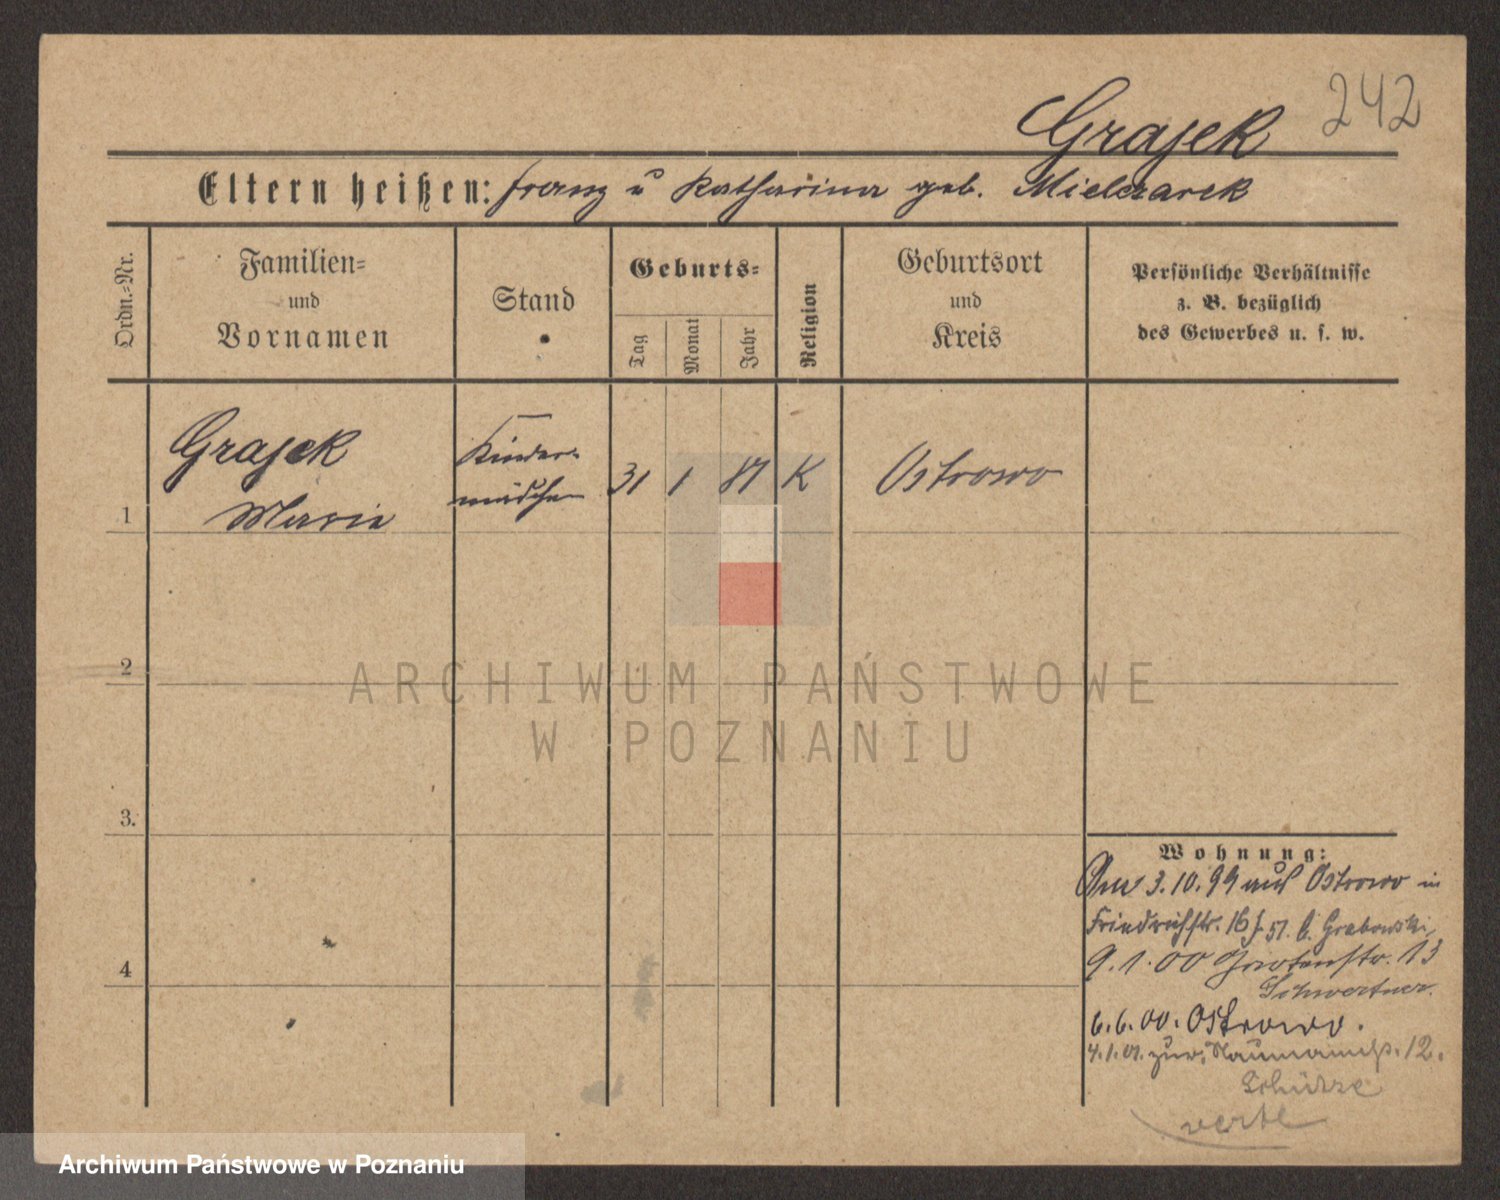 242
Grajek
Eltern heißen: Franz u Katharina geb. Mielczarek
Ordn.=Nr.
Familien=
und
Vornamen
Stand
Geburts=
Tag
Monat
Jahr
Religion
Geburtsort
und
Kreis
Persönliche Verhältnisse
z. B. bezüglich
des Gewerbes u. s. w.
1
Grajek
Maria
Kinder=
mädchen
31 1 81 K Ostrowo
2
3.
4
Wohnung:
3.10.99 aus Ostrowo in
Friedrichstr. 16 b. Grabowski
9.1.00 Gartenstr. 13
Schwertner.
6.6.00. Ostrowo.
4.1.01. zur. Naumannstr. 12.
Schulze
verte
ARCHIWUM PAŃSTWOWE
W POZNANIU
Archiwum Państwowe w Poznaniu